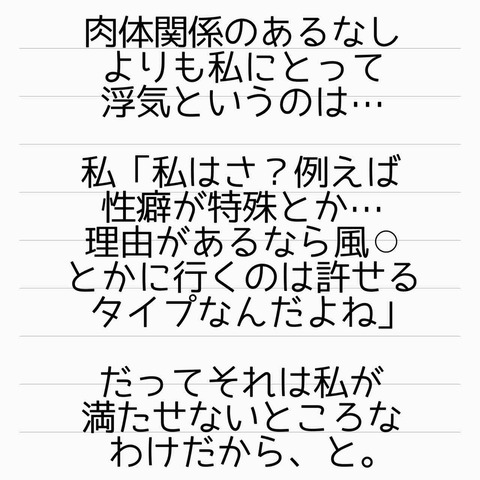 肉体関係のあるなし
よりも私にとって
浮気というのは…
私「私はさ？例えば
性癖が特殊とか…
理由があるなら風○
とかに行くのは許せる
タイプなんだよね」
だってそれは私が
満たせないところな
わけだから、と。